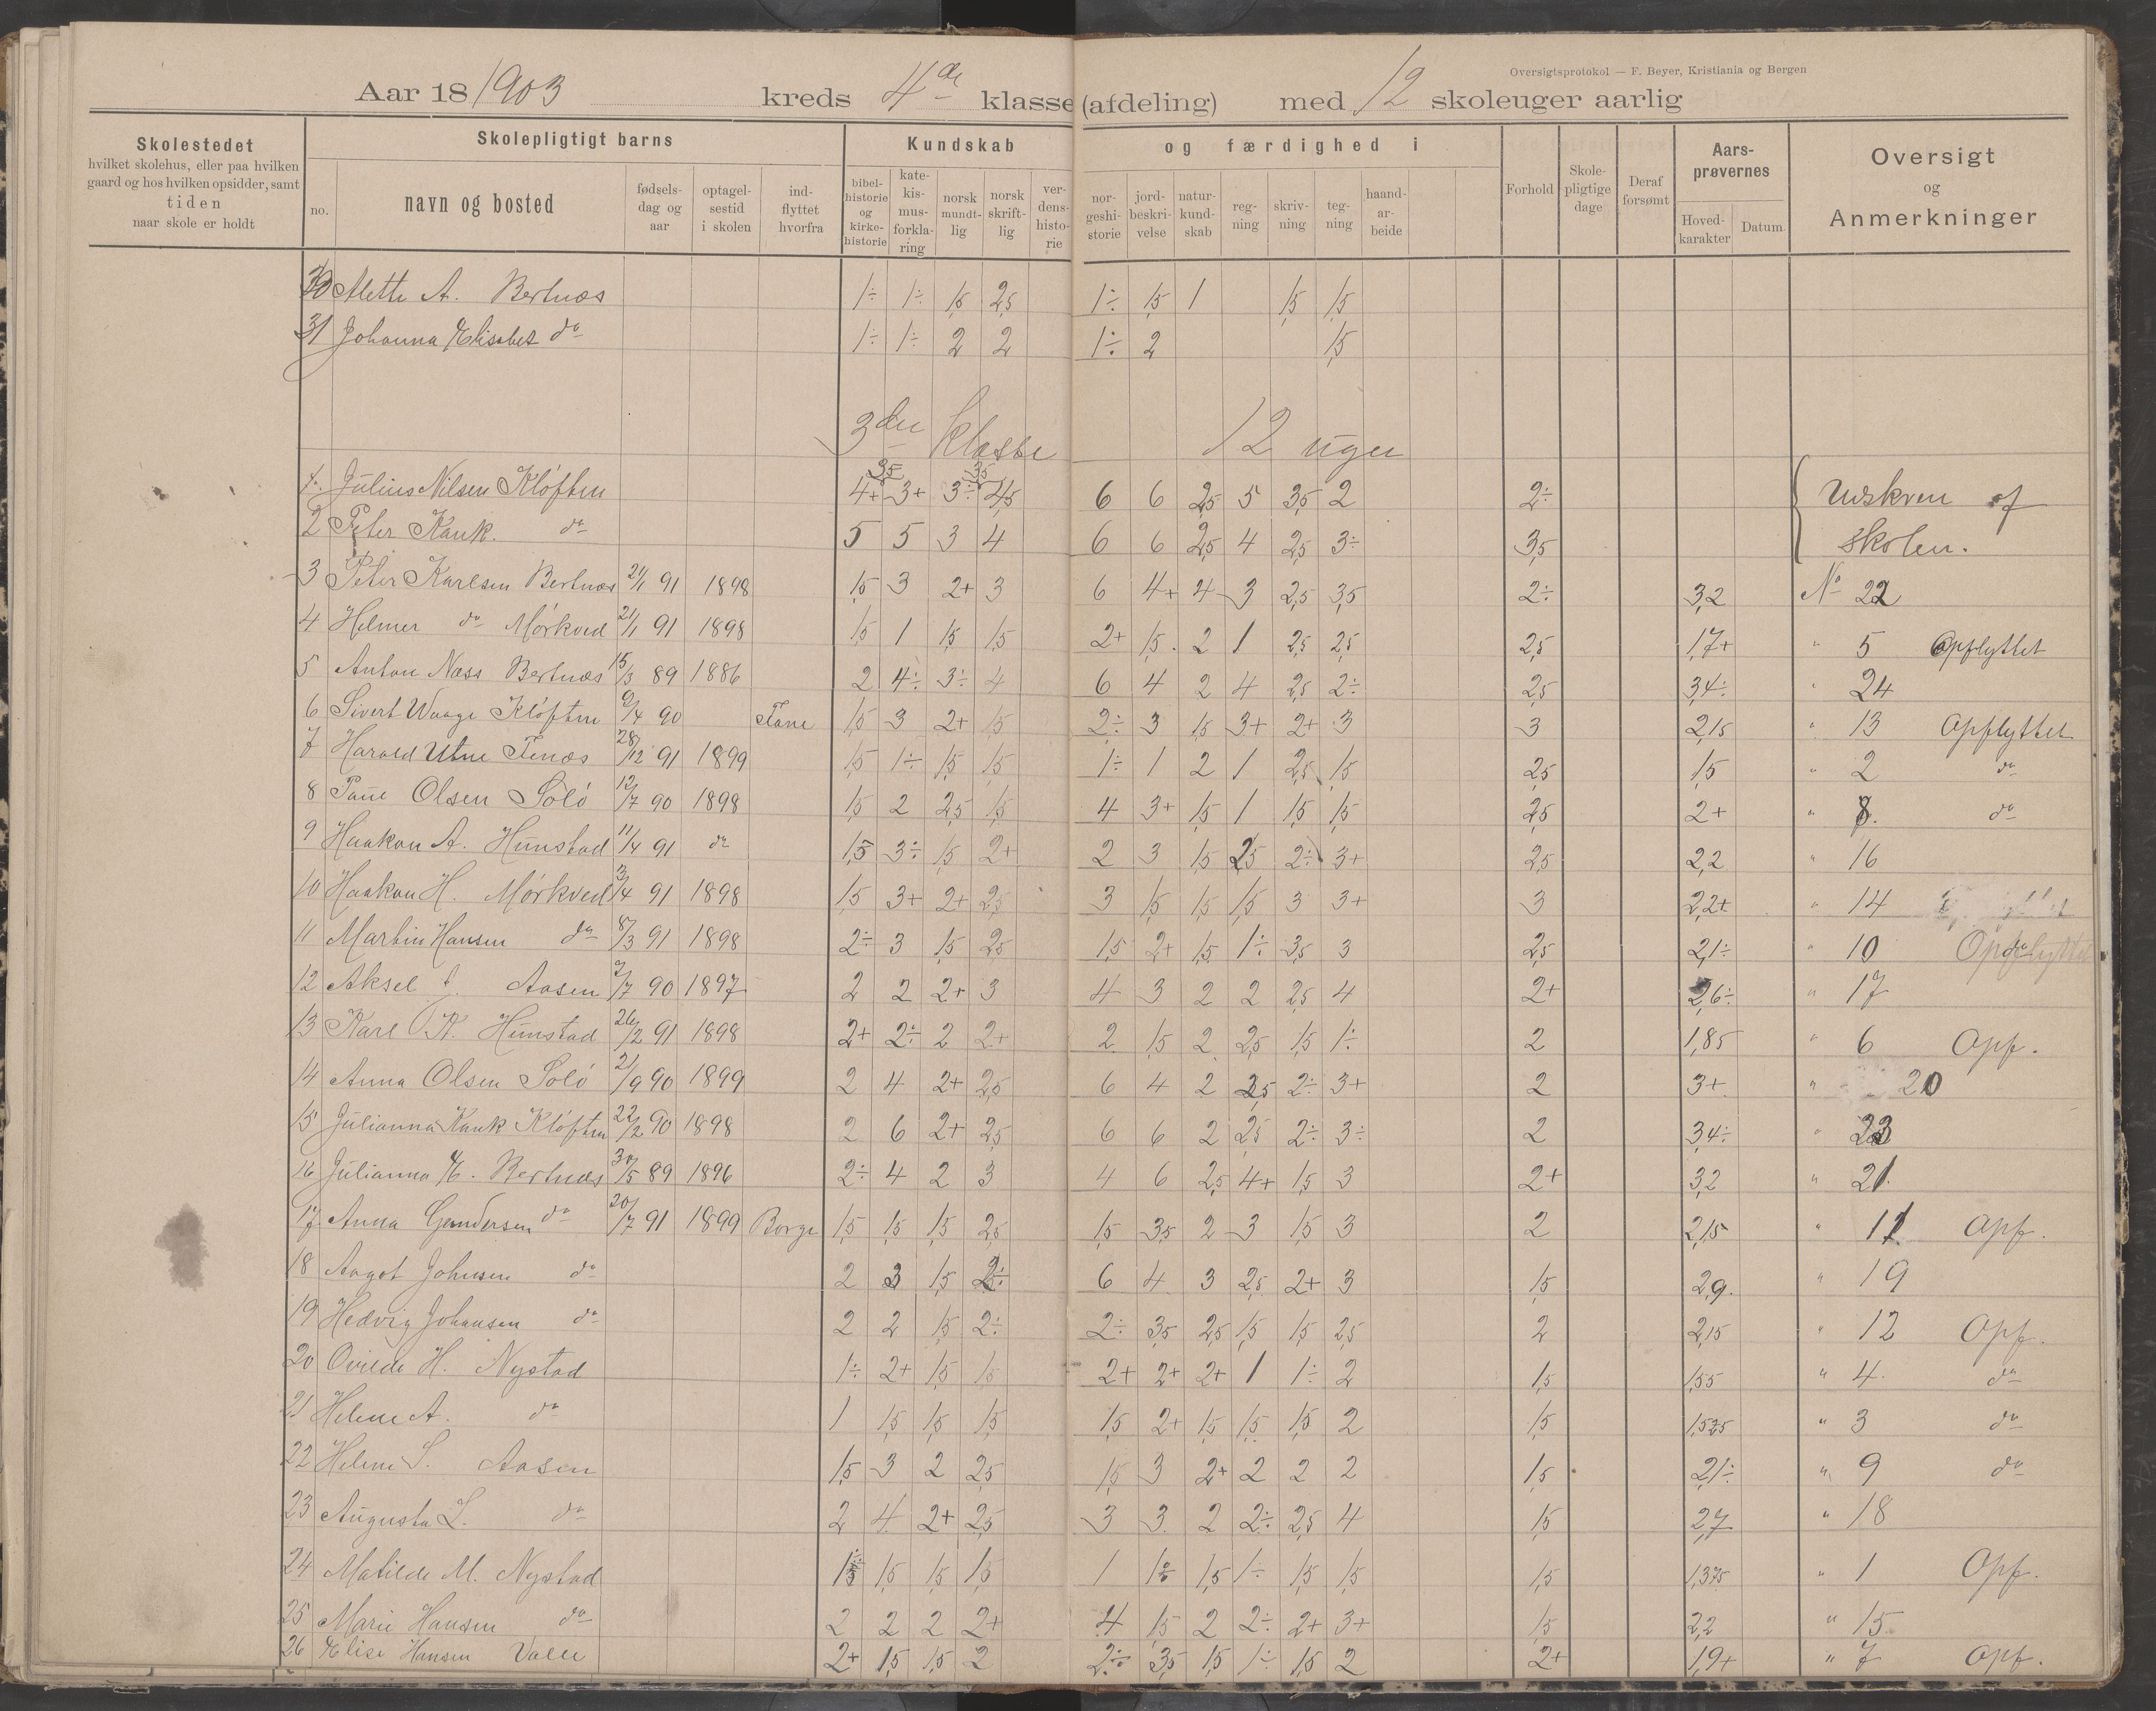 Oversigtsprotokol — F. Beyer, Kristiania og Bergen
Aar 18/1903 kreds 4de klasse (afdeling) med 12 skoleuger aarlig
Skolestedet
hvilket skolehus, eller paa hvilken
gaard og hos hvilken opsidder, samt
tiden
naar skole er holdt
Skolepligtigt barns
no.
navn og bosted
fødsels-
dag og
aar
optagel-
sestid
i skolen
ind-
flyttet
hvorfra
Kundskab og færdighed i
bibel-
historie
og
kirke-
historie
kate-
kis-
mus-
forkla-
ring
norsk
mundt-
lig
norsk
skrift-
lig
ver-
dens-
histo-
rie
nor-
geshi-
storie
jord-
beskri-
velse
natur-
kund-
skab
reg-
ning
skriv-
ning
teg-
ning
haand-
ar-
beide
Forhold
Skole-
pligtige
dage
Deraf
forsømt
Aars-
prøvernes
Hoved-
karakter
Datum
Oversigt
og
Anmerkninger
30 Alette A. Bertnæs 1÷ 1÷ 1,5 2,5 1÷ 1,5 1 1,5 1,5
31 Johanna Elisabet do 1÷ 1÷ 2 2 1÷ 2 1,5
3die klasse 12 uger
1. Julius Nilsen Kløften 4+ 3+ 3÷ 4,5 6 6 2,5 5 3,5 2 2÷ Udskreven af
2 Peter Hauk. do 5 5 3 4 6 6 2,5 4 2,5 3÷ 3,5 skolen.
3 Peter Karlsen Bertnæs 21/1 91 1898 1,5 3 2+ 3 6 4+ 4 3 2,5 3,5 2÷ 3,2 No 22
4 Helmer do Mørkved 21/1 91 1898 1,5 1 1,5 1,5 2+ 1,5 2 1 2,5 2,5 2,5 1,7+ " 5 Opflyttet
5 Anton Næss Bertnæs 15/3 89 1886 2 4÷ 3÷ 4 6 4 2 4 2,5 2÷ 2,5 3,4÷ " 24
6 Sivert Waage Kløften 9/4 90 Fane 1,5 3 2+ 1,5 2÷ 3 1,5 3+ 2+ 3 3 2,15 " 13 Opflyttet
7 Harald Utne Tenæs 28/12 91 1899 1,5 1÷ 1,5 1,5 1÷ 1 2 1 2,5 1,5 2,5 1,5 " 2 do
8 Paul Olsen Solö 12/7 90 1898 1,5 2 2,5 1,5 4 3+ 1,5 1 1,5 1,5 2,5 2+ " 8. do
9 Haakon A. Hunstad 11/4 91 do 1,5 3÷ 1,5 2+ 2 3 1,5 2,5 2÷ 3+ 2,5 2,2 " 16
10 Haakon H. Mørkved 3/4 91 1898 1,5 3+ 2+ 2,5 3 1,5 1,5 1,5 3 3+ 3 2,2+ " 14
11 Martin Hansen do 8/3 91 1898 2÷ 3 1,5 2,5 1,5 2+ 1,5 1÷ 3,5 3 2,5 2,1÷ " 10 Opflyttet
12 Aksel Aasen 2/7 90 1897 2 2 2+ 3 4 3 2 2 2,5 4 2+ 2,6÷ " 17
13 Karl K. Hunstad 26/2 91 1898 2+ 2÷ 2 2+ 2 1,5 2 2,5 1,5 1÷ 2 1,85 " 6 Opf.
14 Anna Olsen Solö 21/9 90 1899 2 4 2+ 2,5 6 4 2 2,5 2÷ 3+ 2 3+ " 20
15 Julianna Hauk Kløften 22/2 90 1898 2 6 2+ 2,5 6 6 2 2,5 2÷ 3÷ 2 3,4÷ " 23
16 Julianna E. Bertnæs 30/5 89 1896 2÷ 4 2 3 4 6 2,5 4+ 1,5 3 2+ 3,2 " 21
17 Anna Gundersen do 20/7 91 1899 Borge 1,5 1,5 1,5 2,5 1,5 3,5 2 3 1,5 3 2 2,15 " 11 Opf.
18 Aagot Johnsen do 2 3 1,5 2÷ 6 4 3 2,5 2+ 3 1,5 2,9 " 19
19 Hedvig Johansen do 2 2 1,5 2÷ 2÷ 3,5 2,5 1,5 1,5 2,5 2 2,15 " 12 Opf.
20 Ovidie H. Nystad 1÷ 2+ 1,5 1,5 2+ 2+ 2+ 1 1÷ 2 1,5 1,55 " 4 do
21 Helene A. do 1 1,5 1,5 1,5 1,5 2+ 1,5 1,5 1,5 2 1,5 1,525 " 3 do
22 Helene S. Aasen 1,5 3 2 2,5 1,5 3 2+ 2 2 2 1,5 2,1÷ " 9 do
23 Augusta L. do 2 4 2+ 2,5 3 3 2 2÷ 2,5 4 1,5 2,7 " 18
24 Matilde M. Nystad 1,5 1,5 1,5 1,5 1 1÷ 1,5 1÷ 1,5 1,5 1,5 1,375 " 1 Opf.
25 Marie Hansen do 2 2 2 2+ 4 1,5 2 2÷ 2+ 3+ 1,5 2,2 " 15
26 Elise Hansen Valle 2+ 1,5 1,5 2 2÷ 3,5 1,5 1÷ 1,5 2 2+ 1,9+ " 7 Opf.